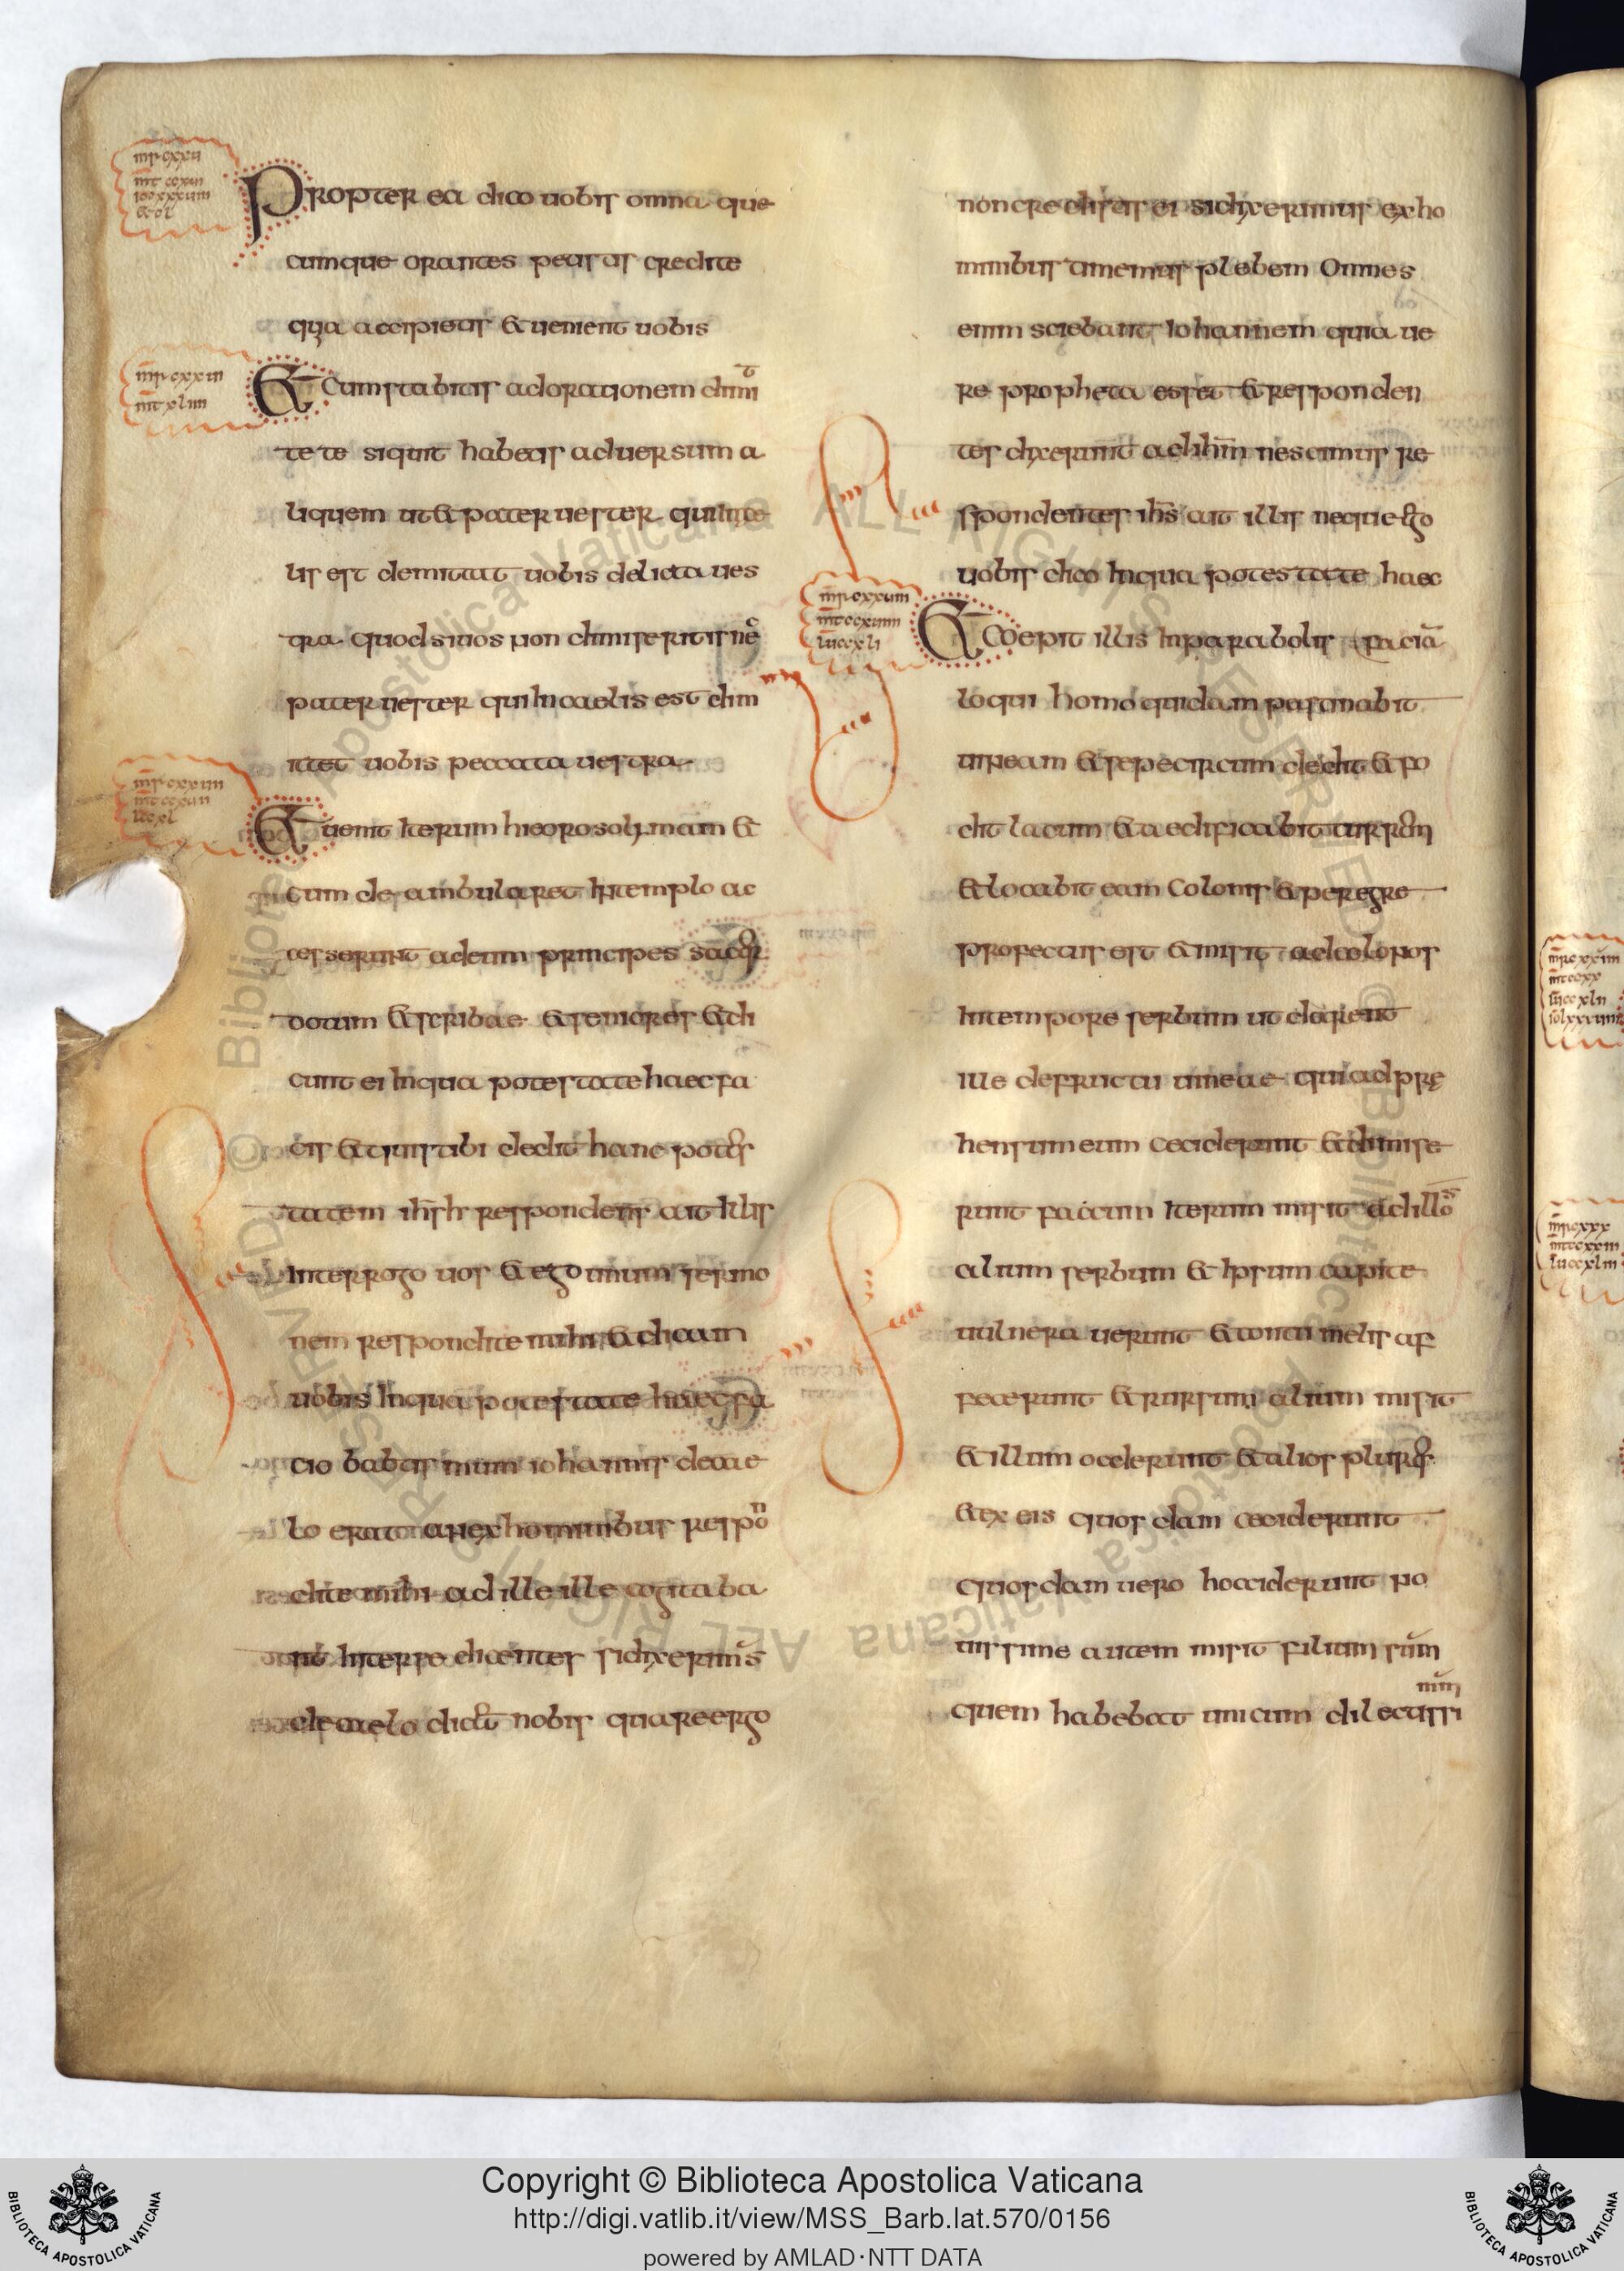 mr cxxii
mt ccxui
ioh xxxuiii
Propter ea dico uobis omnia que
cumque orantes petis tis credite
quia accipietis & uenient uobis
mr cxxiii
mt xliiii
& Cum stabitis ad orationem dimit
te te siquit habetis aduersum a
liquem ut & pater uester qui in ce
lis est demittat uobis delicta ues
tra quod si uos non dimiseritis nec
pater uester qui in caelis est dim
ittet uobis peccata uestra
mr cxxuii
mt ccxuii
lu ccxl
& uenit Iterum hierosolymam &
Cum de ambularet In templo ac
cesserunt ad eum principes sacer
dotum & scribae & seniores & di
cunt ei In qua potestate haec fa
cis & quis tibi dedit hanc potes
tatem ihs h respondens ait Illis
Interrogo uos & ego unum sermo
nem respondite mihi & dicam
uobis In qua potestate haec fa
cio babtismum iohannis de cae
lo erat an ex hominibus respon
dite mihi ad ille ille cogitaba
nt Inter se dicentes si dixerimus
de caelo dicet nobis quare ergo
non cre distis ei si dixerimus ex ho
minibus timemus plebem Omnes
enim sciebant Iohannem quia ue
re propheta esset & responden
tes dixerunt ad ihm nescimus re
spondentes ihs ait illis neque ego
uobis dico In qua potes tate haec
mr cxxuiii
mt ccxuiiii
lu ccxli
& Coepit illis In parabolis facia
loqui homo quidam pastinabit
uineam & sepe circum dedit & fo
dit lacum & aedificabit turrem
& locabit eam Colonis & peregre
profectus est & misit ad colonos
In tempore serbum ut de agient
ille de fructu uineae qui ad pre
hensum eum ceciderunt & dimise
runt uacuum Iterum misit ad illos
alium serbum & Ipsum capite
uulnera uerunt & contu meliis af
fecerunt & rursum alium misit
& illum occiderunt & alios plures
& ex eis quos dam ceciderunt
quos dam uero hocciderunt no
uissime autem misit filium suum
quem habebat unicum dilectissi
mum
mr cxxuiiii
mt ccxx
lu ccxlii
mr cxxx
mt ccxxiii
lu ccxliii
Copyright © Biblioteca Apostolica Vaticana
http://digi.vatlib.it/view/MSS_Barb.lat.570/0156
powered by AMLAD·NTT DATA
BIBLIOTECA APOSTOLICA VATICANA
BIBLIOTECA APOSTOLICA VATICANA